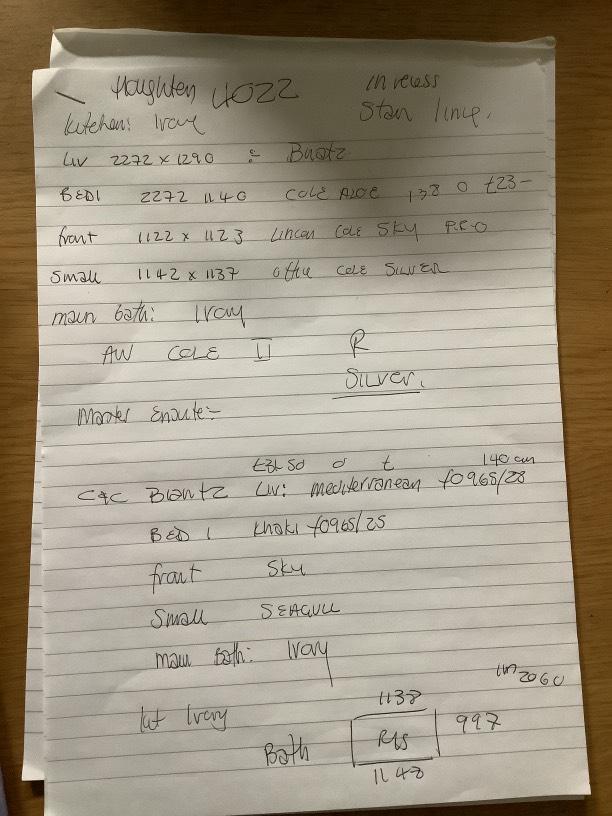 Houghten 4022 in recess
kitchen: Ivory Stan line.
Liv 2272 x 1290 =
BED1 2272 1140 COLE ALOE 138 0 £23-
front 1122 x 1123 Lincan Cole SKY
Small 1142 x 1137 COLE SILVER
main bath: Ivory
AW COLE II R
Silver.
Master Ensuite:-
140 cm
C+C Liv: mediterranean f0965/28
BED 1 khaki f0965/25
front Sky
Small SEAGULL
main Bath: Ivory
2060
kit Ivory 1138
Bath R/S 997
1148